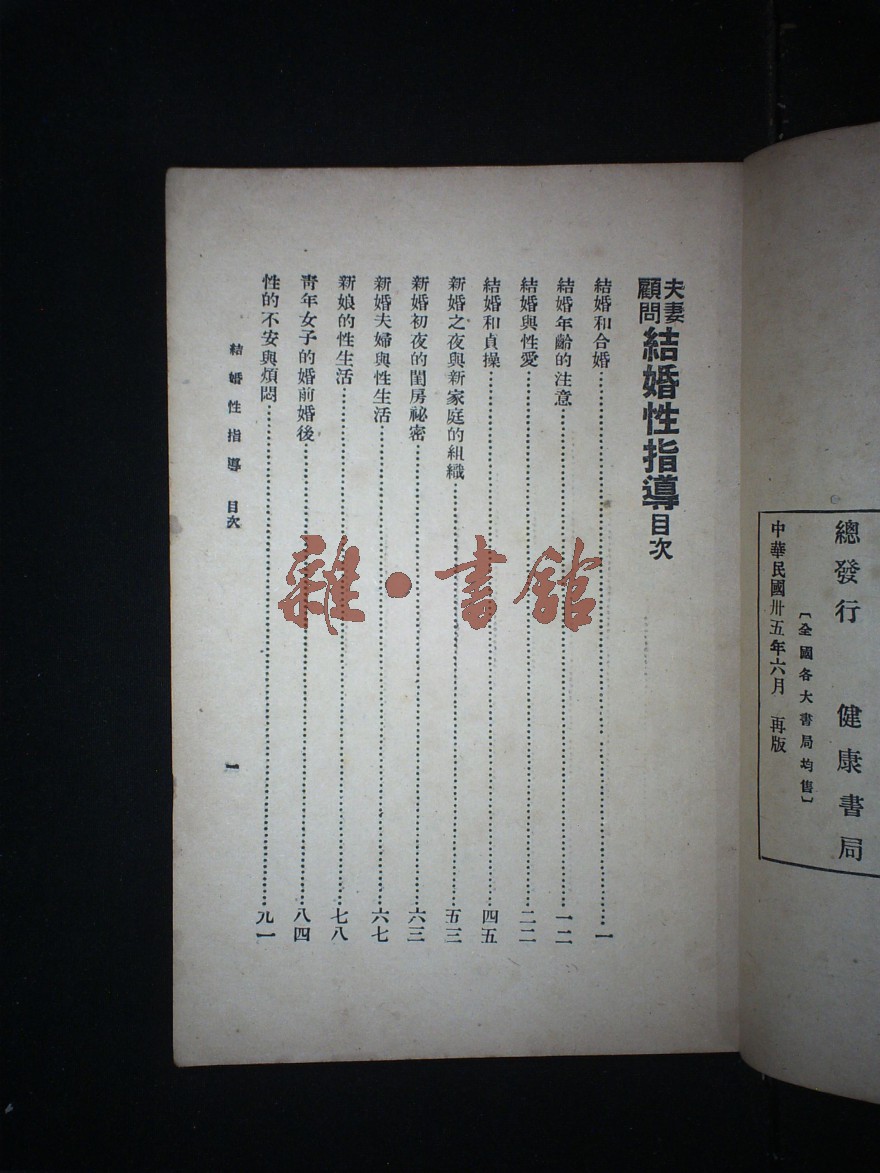 總發行 健康書局
〔全國各大書局均售〕
中華民國卅五年六月 再版
夫妻顧問 結婚性指導目次
結婚和合婚……一
結婚年齡的注意……一二
結婚與性愛……二二
結婚和貞操……四五
新婚之夜與新家庭的組織……五三
新婚初夜的閨房祕密……六三
新婚夫婦與性生活……六七
新娘的性生活……七八
靑年女子的婚前婚後……八四
性的不安與煩悶……九一
結婚性指導 目次
一
雜·書館